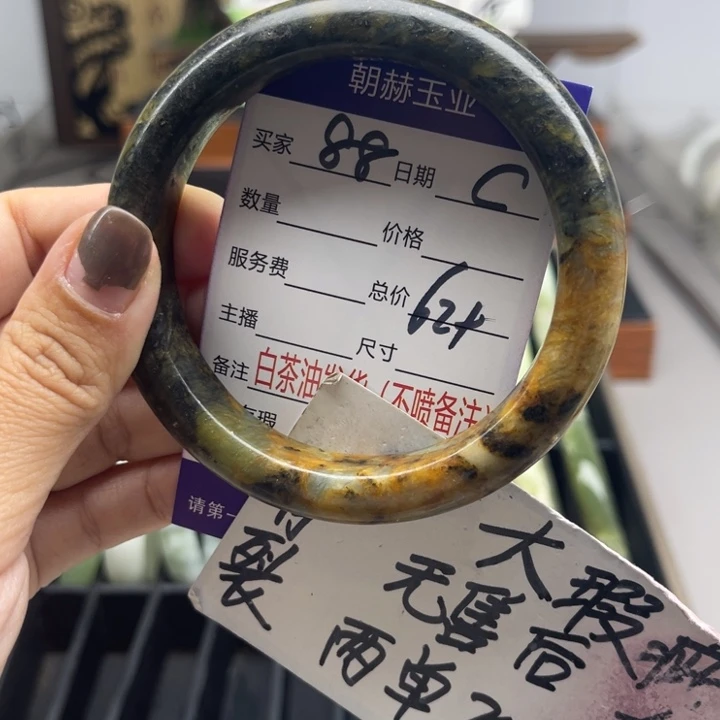 朝赫玉业
买家 888 日期
数量 价格
服务费 总价 624
主播 尺寸
备注 白茶油发货（不喷备注）
瑕
请第一
裂
大瑕疵
无售后
两单